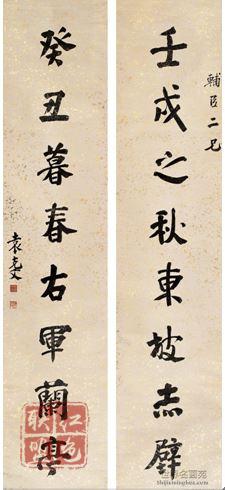 輔臣二兄
壬戌之秋東坡赤壁
癸丑暮春右軍蘭亭
袁克文